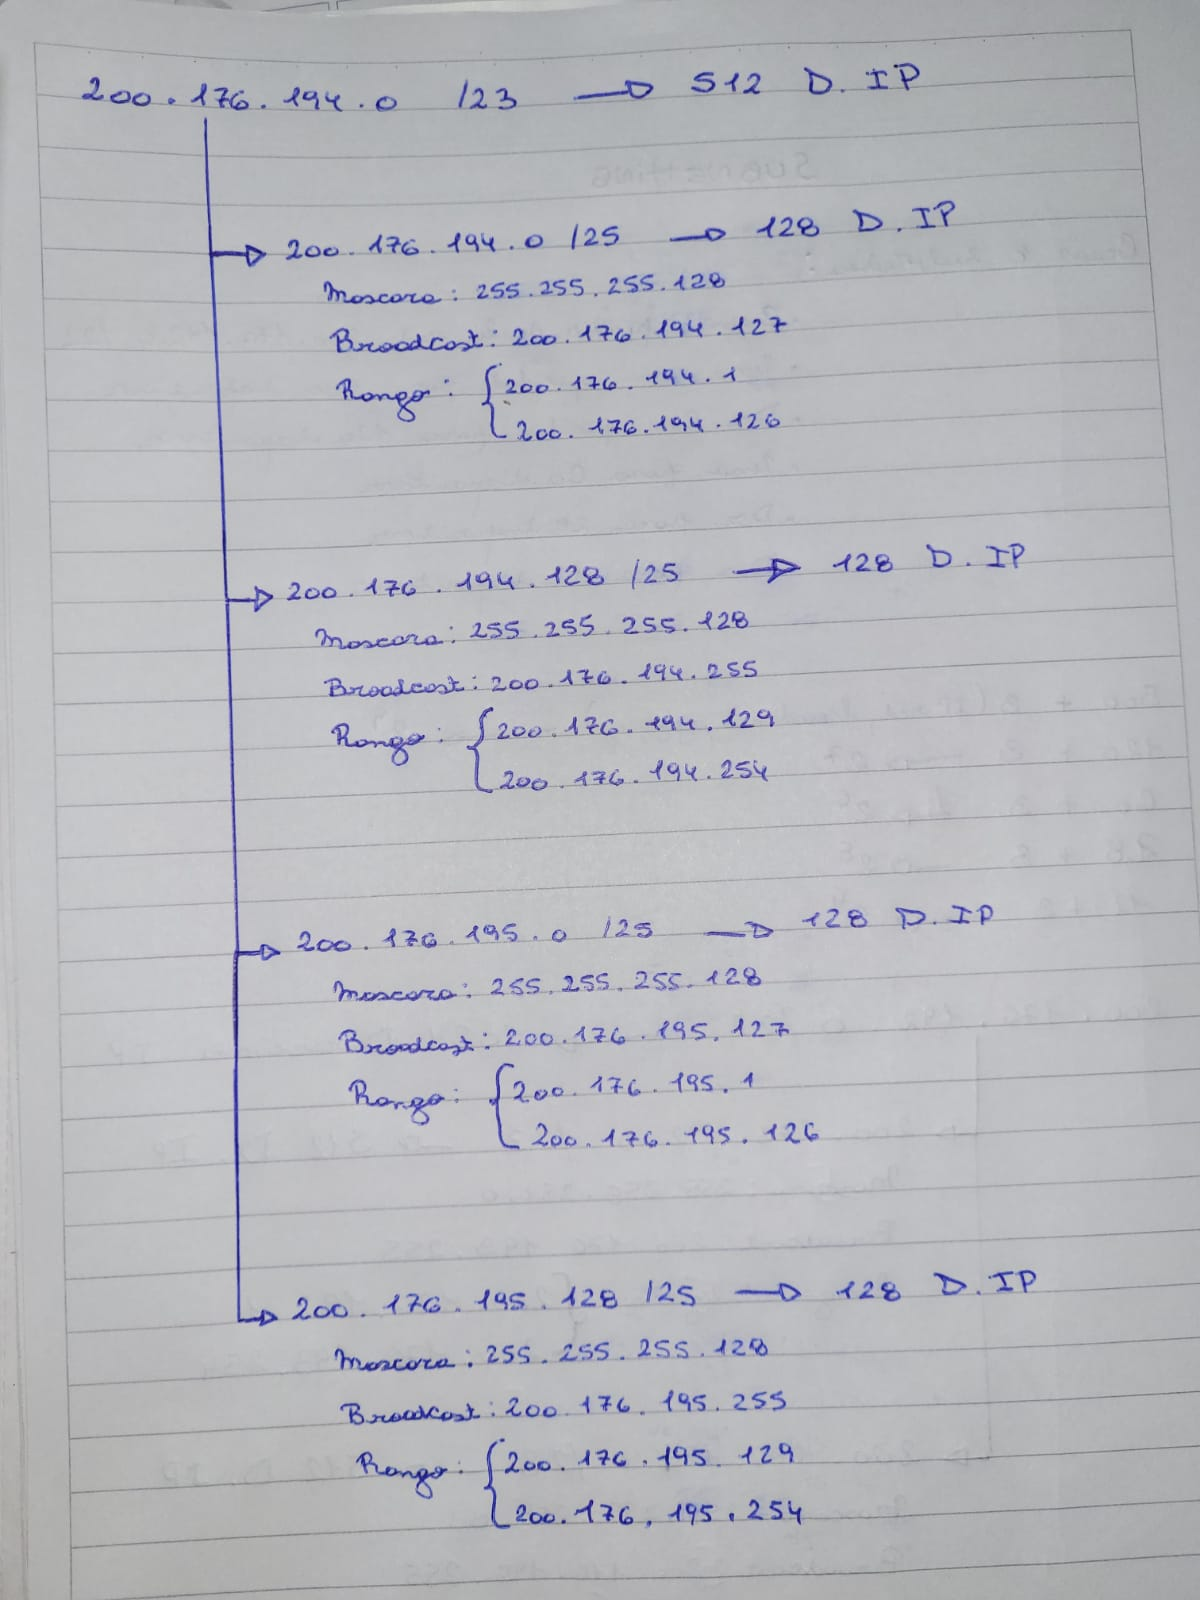 200.176.194.0 /23 → 512 D.IP
200.176.194.0 /25 → 128 D.IP
Mascara: 255.255.255.128
Broadcast: 200.176.194.127
Rango: { 200.176.194.1
200.176.194.126
200.176.194.128 /25 → 128 D.IP
Mascara: 255.255.255.128
Broadcast: 200.176.194.255
Rango: { 200.176.194.129
200.176.194.254
200.176.195.0 /25 → 128 D.IP
Mascara: 255.255.255.128
Broadcast: 200.176.195.127
Rango: { 200.176.195.1
200.176.195.126
200.176.195.128 /25 → 128 D.IP
Mascara: 255.255.255.128
Broadcast: 200.176.195.255
Rango: { 200.176.195.129
200.176.195.254